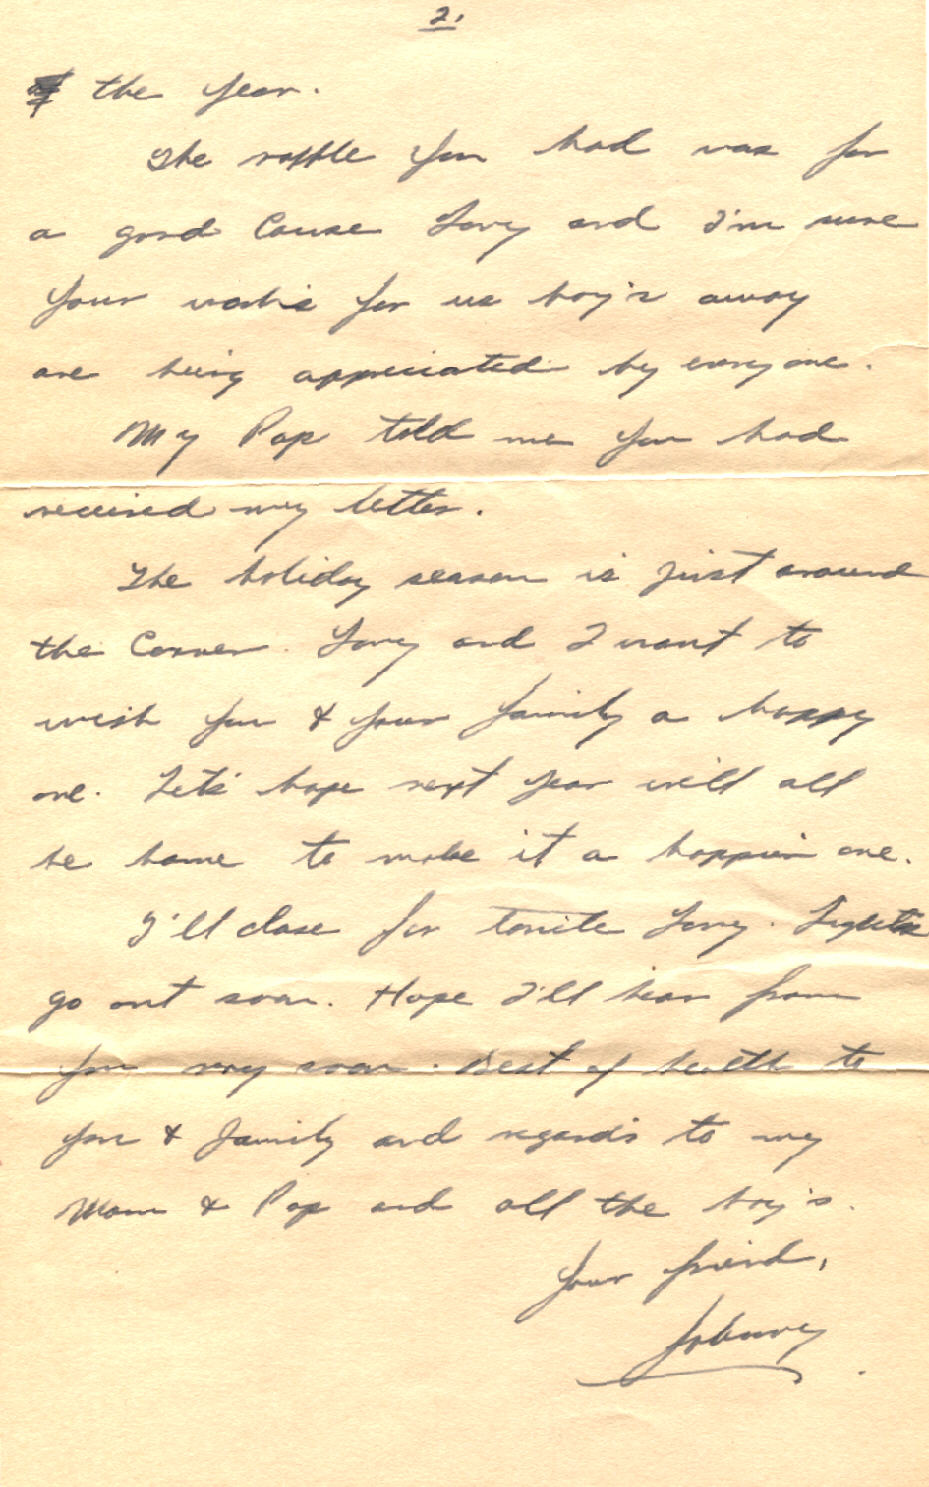 2.
the year.
The raffle you had was for
a good Cause Tony and I'm sure
your works for us boy's away
are being appreciated by everyone.
My Pop told me you had
received my letter.
The holiday season is just around
the Corner. Tony and I want to
wish you & your family a happy
one. Let's hope next year will all
be home to make it a happier one.
I'll close for tonite Tony. Lights
go out soon. Hope I'll hear from
you very soon. Best of health to
you & family and regards to my
Mom & Pop and all the boy's.
Your friend,
Johnny